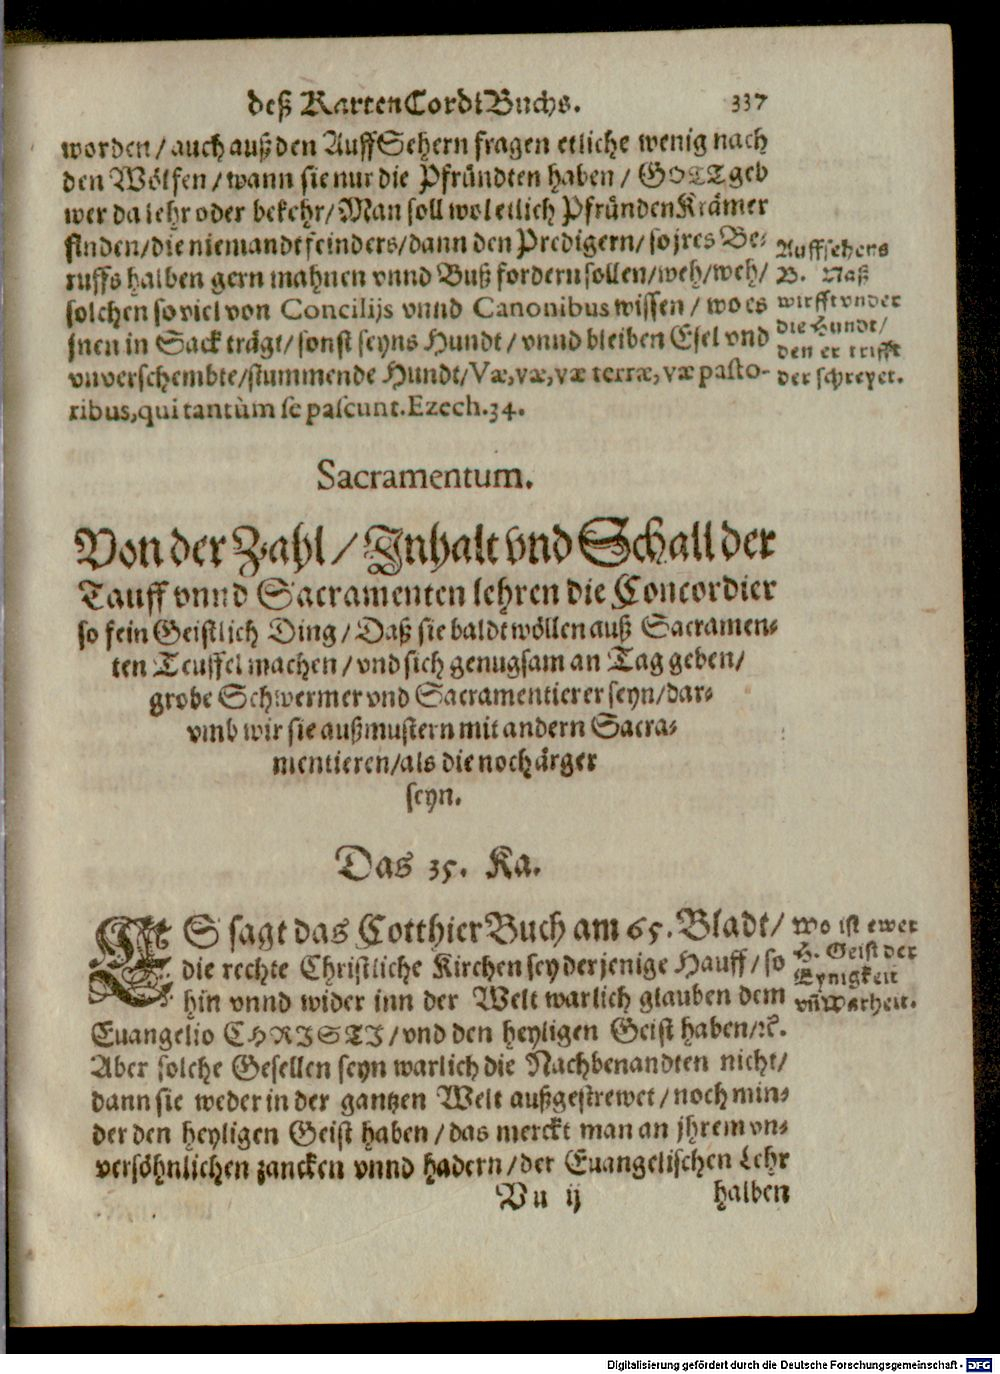 deß KartenCordiBuchs. 337
worden/auch auß den AuffSehern fragen etliche wenig nach
den Wölfen/wann sie nur die Pfründten haben/ GOTT geb
wer da lehr oder bekehr/Man soll wol etlich PfründenKrämer
finden/die niemandt feinders/dann den Predigern/ so jres Be-
ruffs halben gern mahnen vnnd Buß fordern sollen/weh/weh/
solchen so viel von Concilijs vnnd Canonibus wissen/ wo es
jnen in Sack trägt/ sonst seyns Hundt/ vnnd bleiben Esel vnd
vnverschembte/stummende Hundt/Væ, væ, væ terræ, væ pasto-
ribus, qui tantùm se pascunt. Ezech. 34.
Auffsehens
B. Naß
wirfft vnder
die Hundt/
den er trifft
der schreyet.
Sacramentum.
Von der Zahl/ Inhalt vnd Schall der
Tauff vnnd Sacramenten lehren die Concordier
so fein Geistlich Ding/ Daß sie baldt wöllen auß Sacramen-
ten Teuffel machen/ vnd sich genugsam an Tag geben/
grobe Schwermer vnd Sacramentierer seyn/dar-
vmb wir sie außmustern mit andern Sacra-
mentieren/als die noch ärger
seyn.
Das 35. Ka.
ES sagt das Cotthier Buch am 65. Bladt/
die rechte Christliche Kirchen sey derjenige Hauff/ so
hin vnnd wider inn der Welt warlich glauben dem
Euangelio CHRISTI/vnd den heyligen Geist haben/ꝛc.
Aber solche Gesellen seyn warlich die Nachbenandten nicht/
dann sie weder in der gantzen Welt außgestrewet/ noch min-
der den heyligen Geist haben/ das merckt man an jhrem vn-
versöhnlichen zancken vnnd hadern/der Euangelischen Lehr
wo ist ewer
H. Geist der
Eynigkeit
vñ Warheit.
Vu ij halben
Digitalisierung gefördert durch die Deutsche Forschungsgemeinschaft - DFG